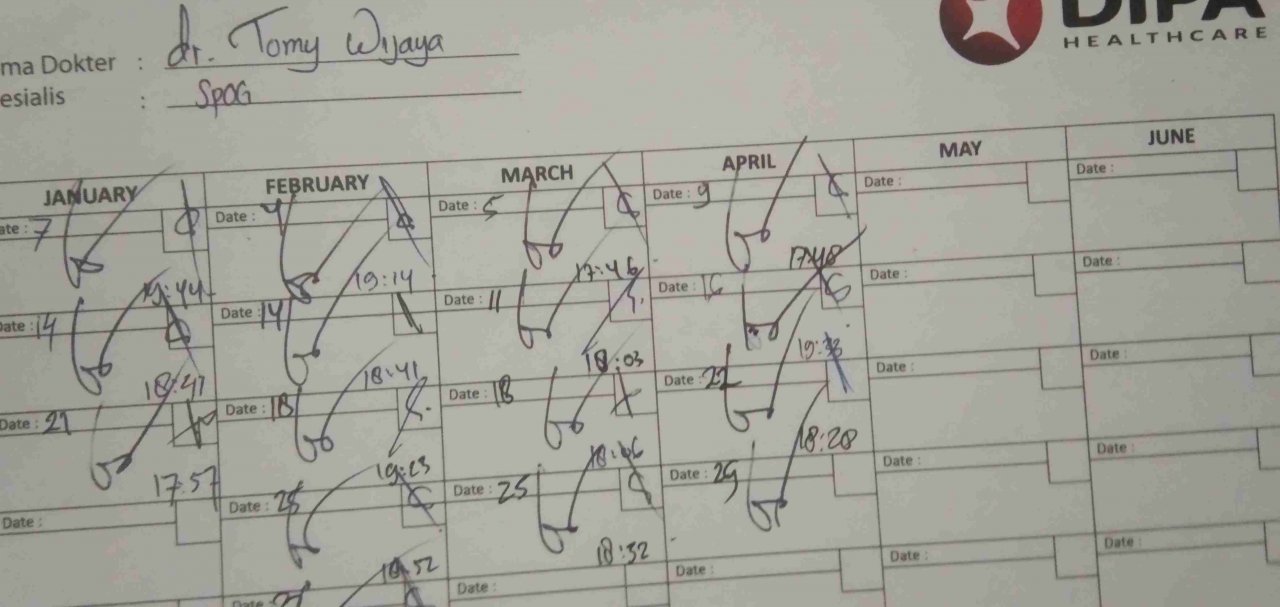 DIPA
HEALTHCARE
ma Dokter : dr. Tomy Wijaya
esialis : SpOG
JANUARY FEBRUARY MARCH APRIL MAY JUNE
ate : 7 Date : 4 Date : 5 Date : 9 Date : Date :
19:44 19:14 17:46 17:48
Date : 14 Date : 14 Date : 11 Date : 16 Date : Date :
18:41 18:03
Date : 21 Date : 18 Date : 18 Date : 22 Date : Date :
17:57 19:23 18:28
Date : Date : 25 Date : 25 Date : 29 Date : Date :
18:52 18:32
Date : Date : Date : Date : Date :